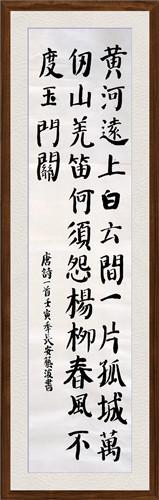 黄河遠上白云間一片孤城萬
仞山羌笛何須怨楊柳春風不
度玉門關
唐詩一首壬寅季長安藝書